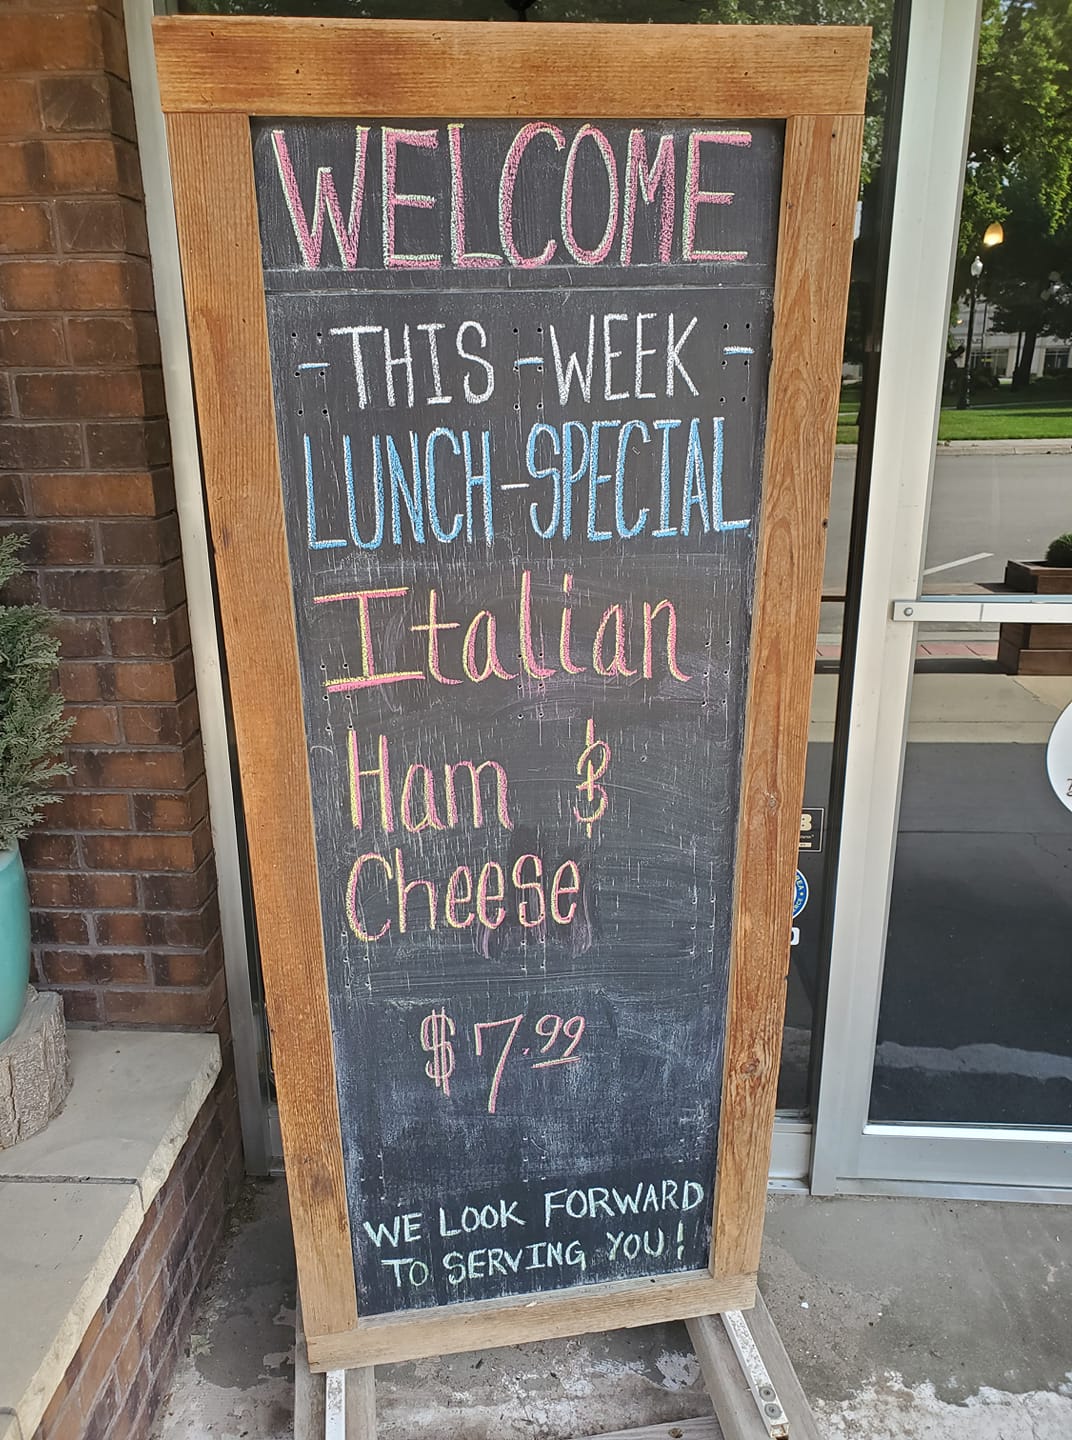 WELCOME
-THIS-WEEK-
LUNCH-SPECIAL
Italian
Ham &
Cheese
$7.99
WE LOOK FORWARD
TO SERVING YOU!